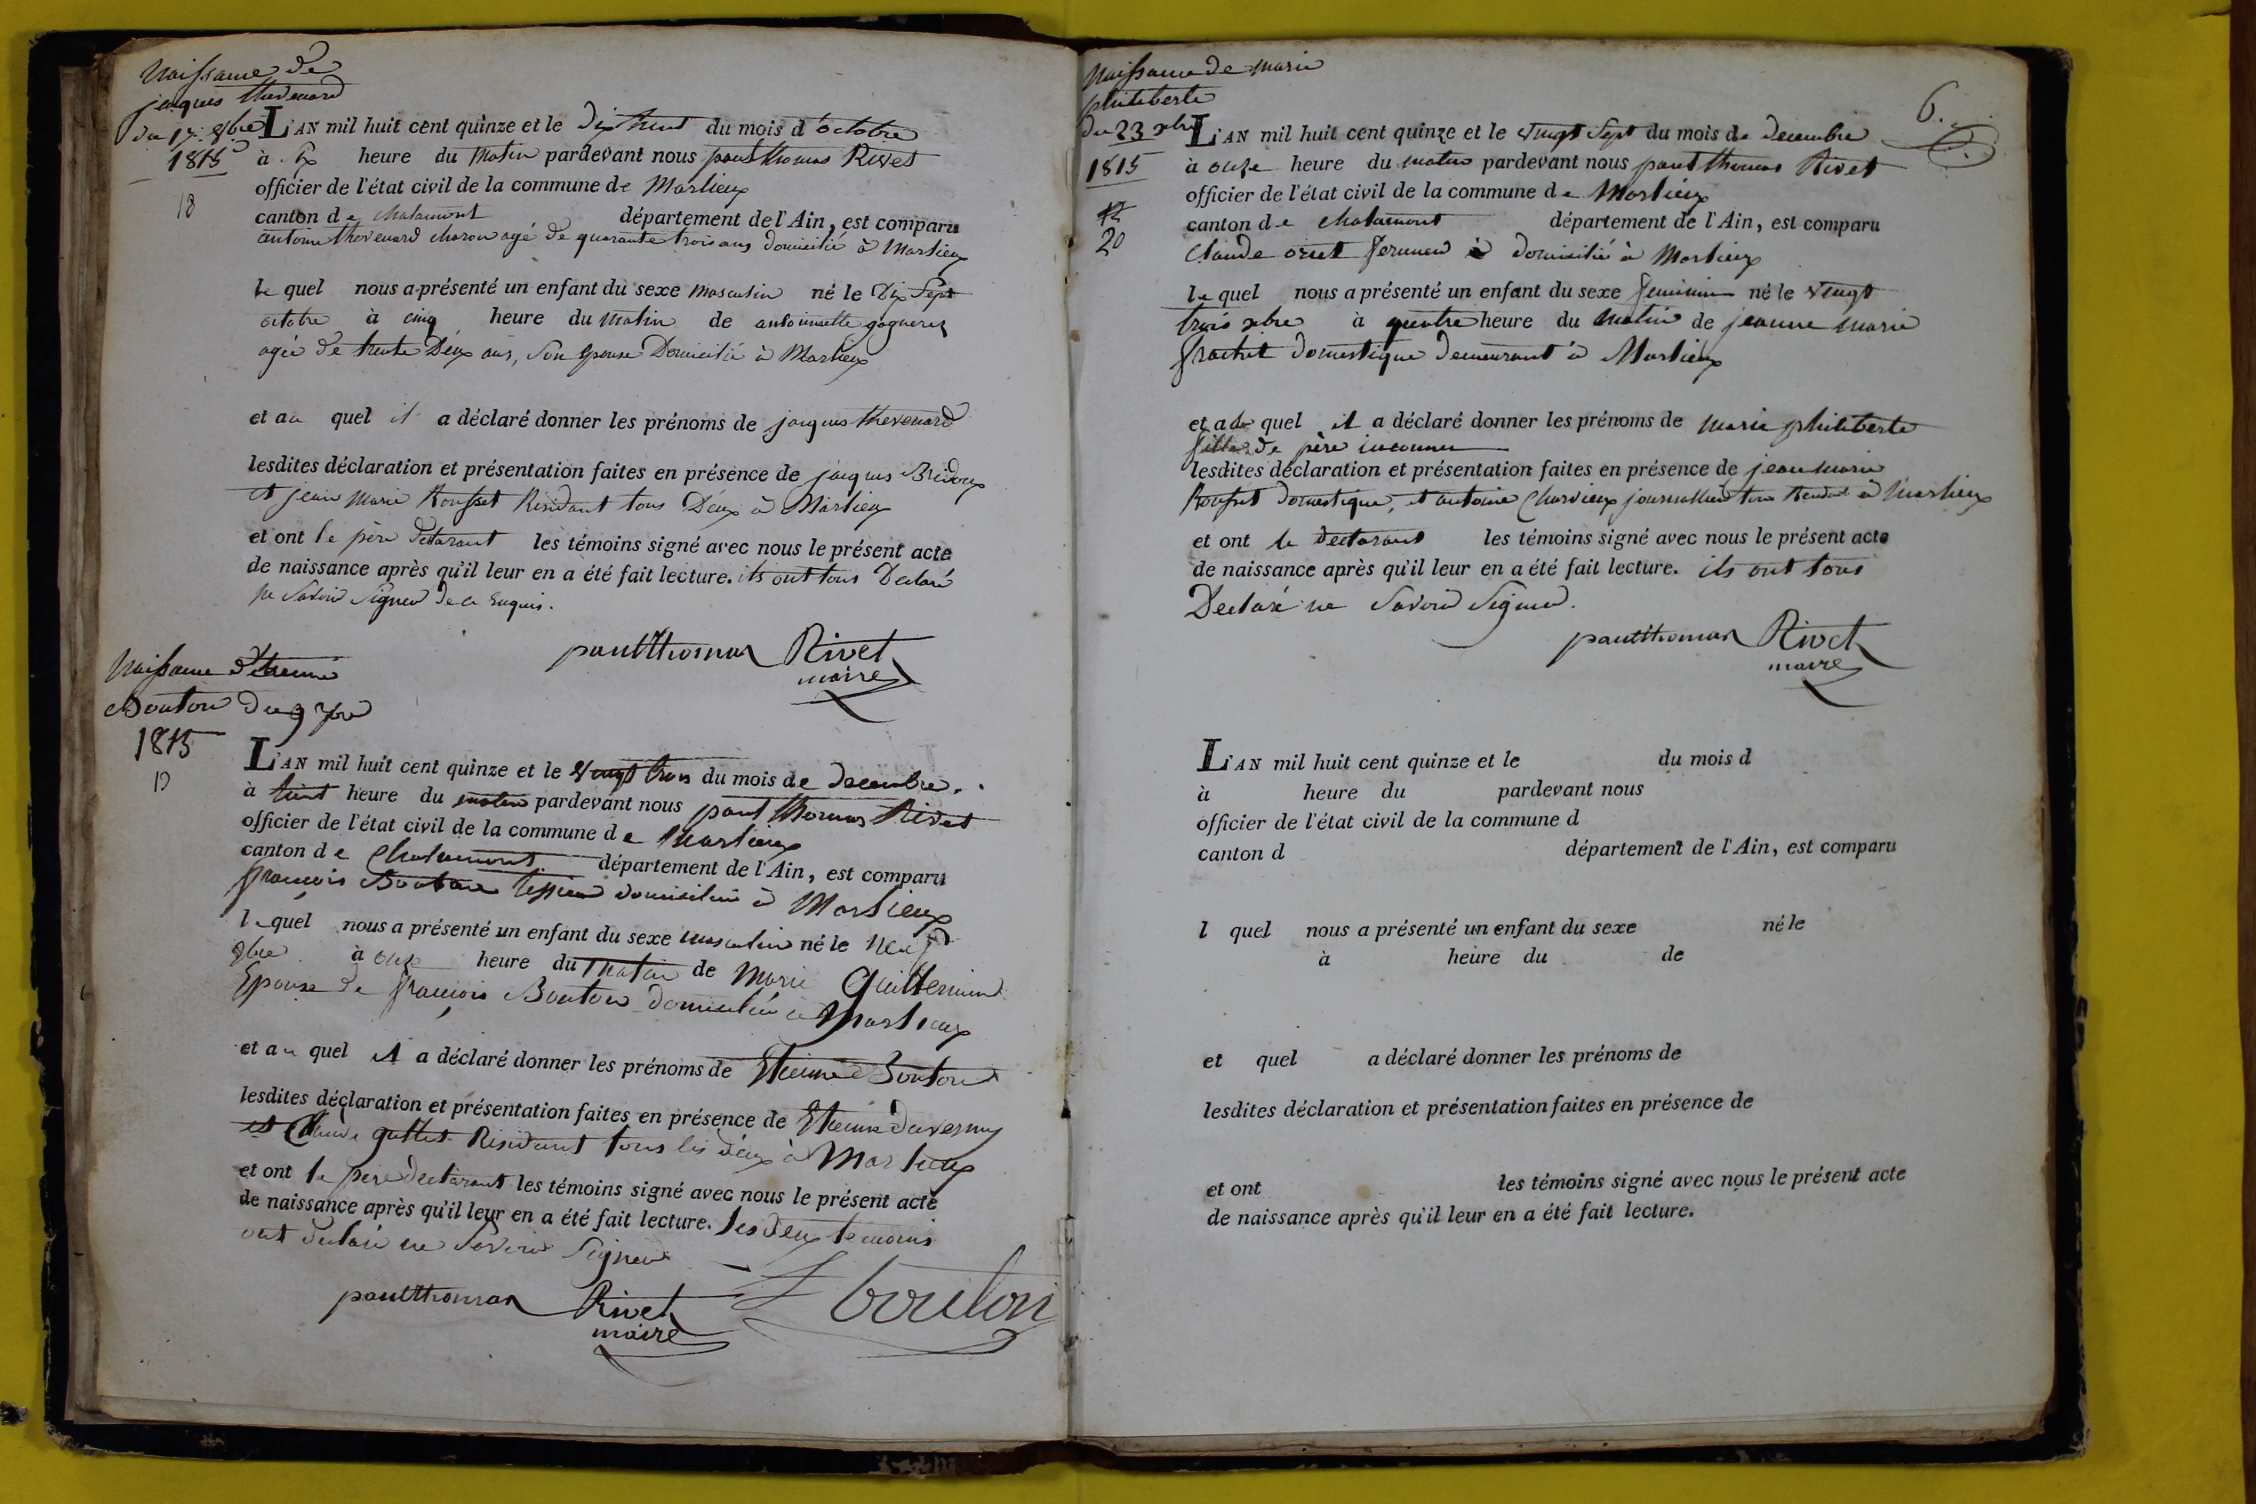 Naissance de
jacques thevenard
du 17 8bre
1815
18
L'AN mil huit cent quinze et le dix huit du mois d'octobre
à heure du matin pardevant nous paul thomas Rivet
officier de l'état civil de la commune de Marlieux
canton de chalamont département de l'Ain, est comparu
antoine thevenard charon agé de quarante trois ans domicilié à Marlieux
le quel nous a présenté un enfant du sexe masculin né le Dix Sept
octobre à cinq heure du matin de antoinette
agée de trente Deux ans, Son Epouse Domicilié à Marlieux
et au quel il a déclaré donner les prénoms de jacques thevenard
lesdites déclaration et présentation faites en présence de jacques Bridoux
et jean Marie Rousset Résidant tous Deux à Marlieux
et ont le père déclarant les témoins signé avec nous le présent acte
de naissance après qu'il leur en a été fait lecture. ils ont tous Déclaré
ne Savoir Signer de ce Enquis.
paul thomas Rivet
maire
Naissance d'étienne
Bouton du 9
1815
19
L'AN mil huit cent quinze et le vingt trois du mois de decembre.
à huit heure du matin pardevant nous paul thomas Rivet
officier de l'état civil de la commune de Marlieux
canton de Chalamont département de l'Ain, est comparu
françois Bouton tissier domicilié à Marlieux
le quel nous a présenté un enfant du sexe masculin né le neuf
à onze heure du matin de Marie Guillemin
Epouse de françois Bouton domicilié à Marlieux
et au quel il a déclaré donner les prénoms de Etienne Bouton
lesdites déclaration et présentation faites en présence de Etienne Duvernay
et Claude Résidant tous les deux à Marlieux
et ont le père déclarant les témoins signé avec nous le présent acte
de naissance après qu'il leur en a été fait lecture. les deux témoins
ont déclaré ne Savoir Signer
paul thomas Rivet
maire
f bouton
Naissance de marie
philiberte
du 23 xbre
1815
20
6.
L'AN mil huit cent quinze et le vingt Sept du mois de decembre
à onze heure du matin pardevant nous paul thomas Rivet
officier de l'état civil de la commune de Marlieux
canton de chalamont département de l'Ain, est comparu
Claude fermier à domicilié à Marlieux
le quel nous a présenté un enfant du sexe feminin né le vingt
trois xbre à quatre heure du matin de jeanne marie
domestique demeurant à Marlieux
et a la quel il a déclaré donner les prénoms de marie philiberte
fille de père inconnu
lesdites déclaration et présentation faites en présence de jean marie
Rousset domestique, et antoine Charvieux journallier tous à Marlieux
et ont le declarant les témoins signé avec nous le présent acte
de naissance après qu'il leur en a été fait lecture. ils ont tous
Déclaré ne Savoir Signer.
paul thomas Rivet
maire
L'AN mil huit cent quinze et le du mois d
à heure du pardevant nous
officier de l'état civil de la commune d
canton d département de l'Ain, est comparu
l quel nous a présenté un enfant du sexe né le
à heure du de
et quel a déclaré donner les prénoms de
lesdites déclaration et présentation faites en présence de
et ont les témoins signé avec nous le présent acte
de naissance après qu'il leur en a été fait lecture.